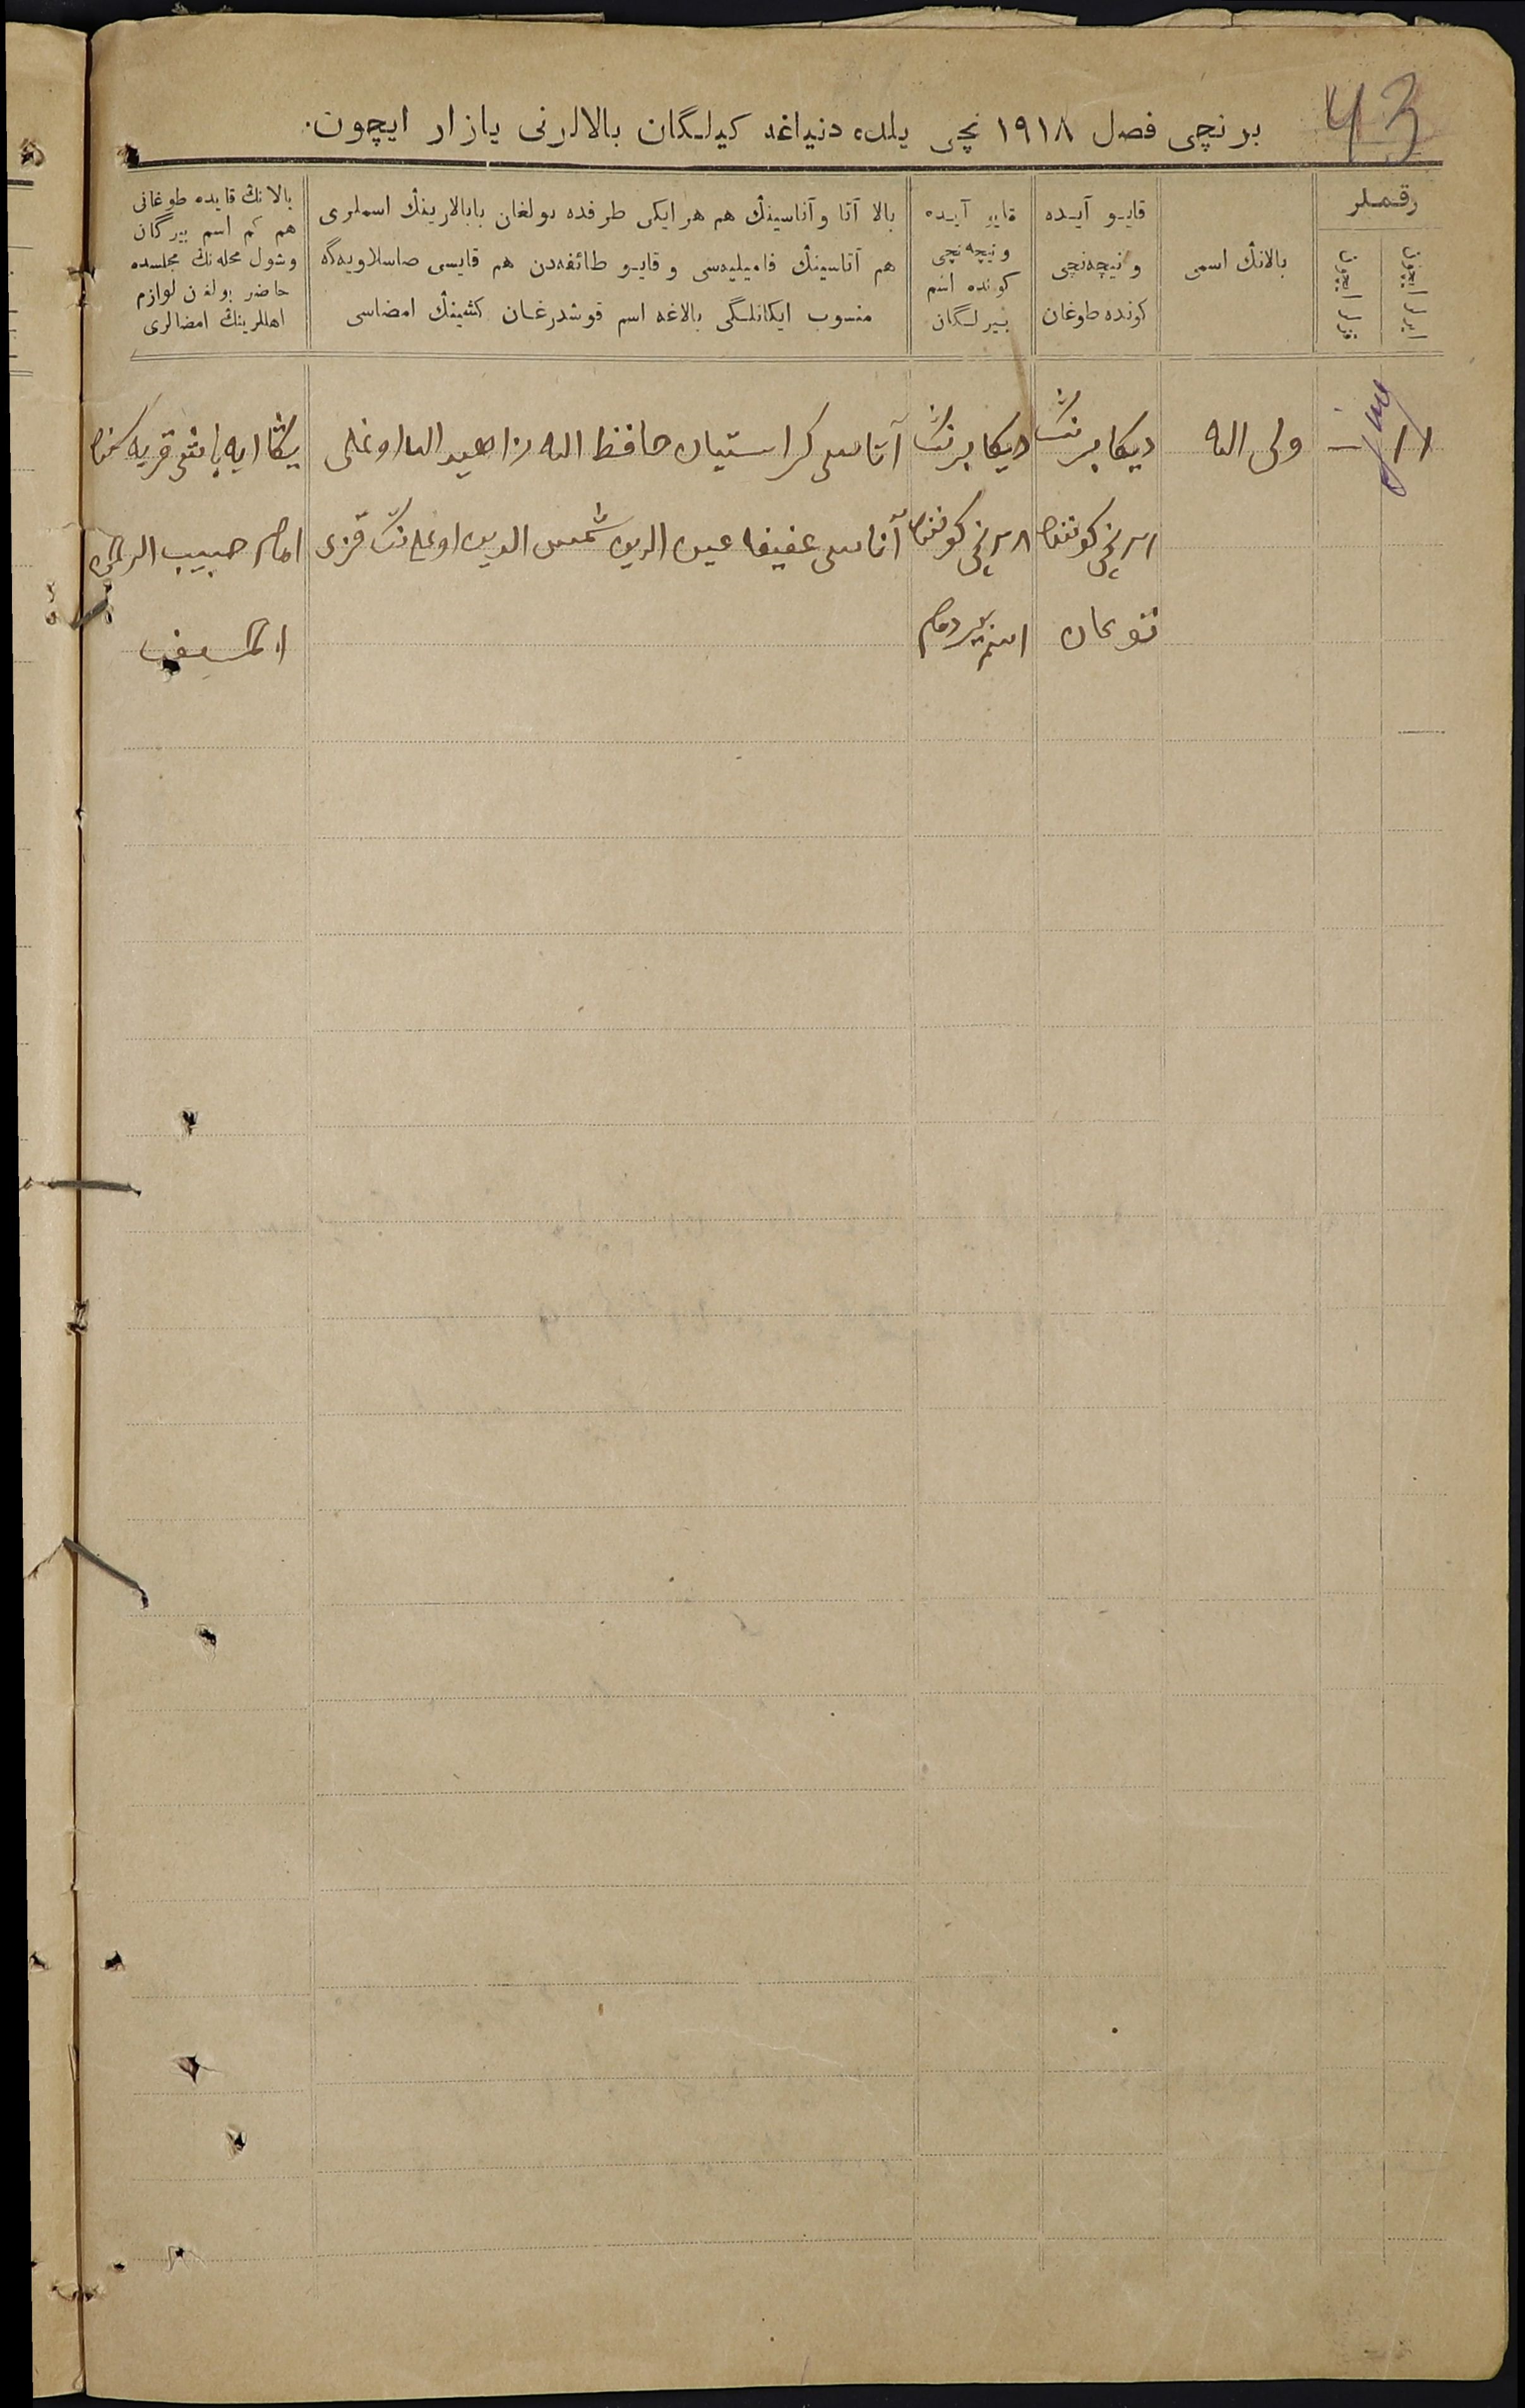 43
برنچی فصل ١٩١٨ نچی یلده دنیاغه کیلـگان بالالرنی یازار ایچون.
رقـمـلر
ایرلر ایچون
قزلر ایچون
بالانڭ اسمی
قایـو آیـده
و نیچه‌نچی
کونده طوغان
قایو آیـده
و نیچه نچی
کونده اسم
بـیرلـگان
بالا آتا و آناسینڭ هم هر ایکی طرفده بولغان بابالارینڭ اسملری
هم آتاسینڭ فامیلیه‌سی و قایـو طائفه‌دن هم قایسی صاسلاویه‌گه
منسوب ایکانلـگی بالاغه اسم قوشدرغـان کشینڭ امضاسی
بالانڭ قایده طوغانی
هم کم اسم بیرگان
و شول محله‌نڭ مجلسده
حاضر بولغن لوازم
اهللرینڭ امضالری
١١
ولی الله
دیکابرنڭ
نچی کوننده
توغان
دیکابرنڭ
نچی کوننده
آتاسی کراستیان حافظ الله زاهید الله اوغلی
آناسی عفیفه عین الدین شمس الدین اوغلی نڭ قزی
قریه سنده
امام حبیب الرحمن